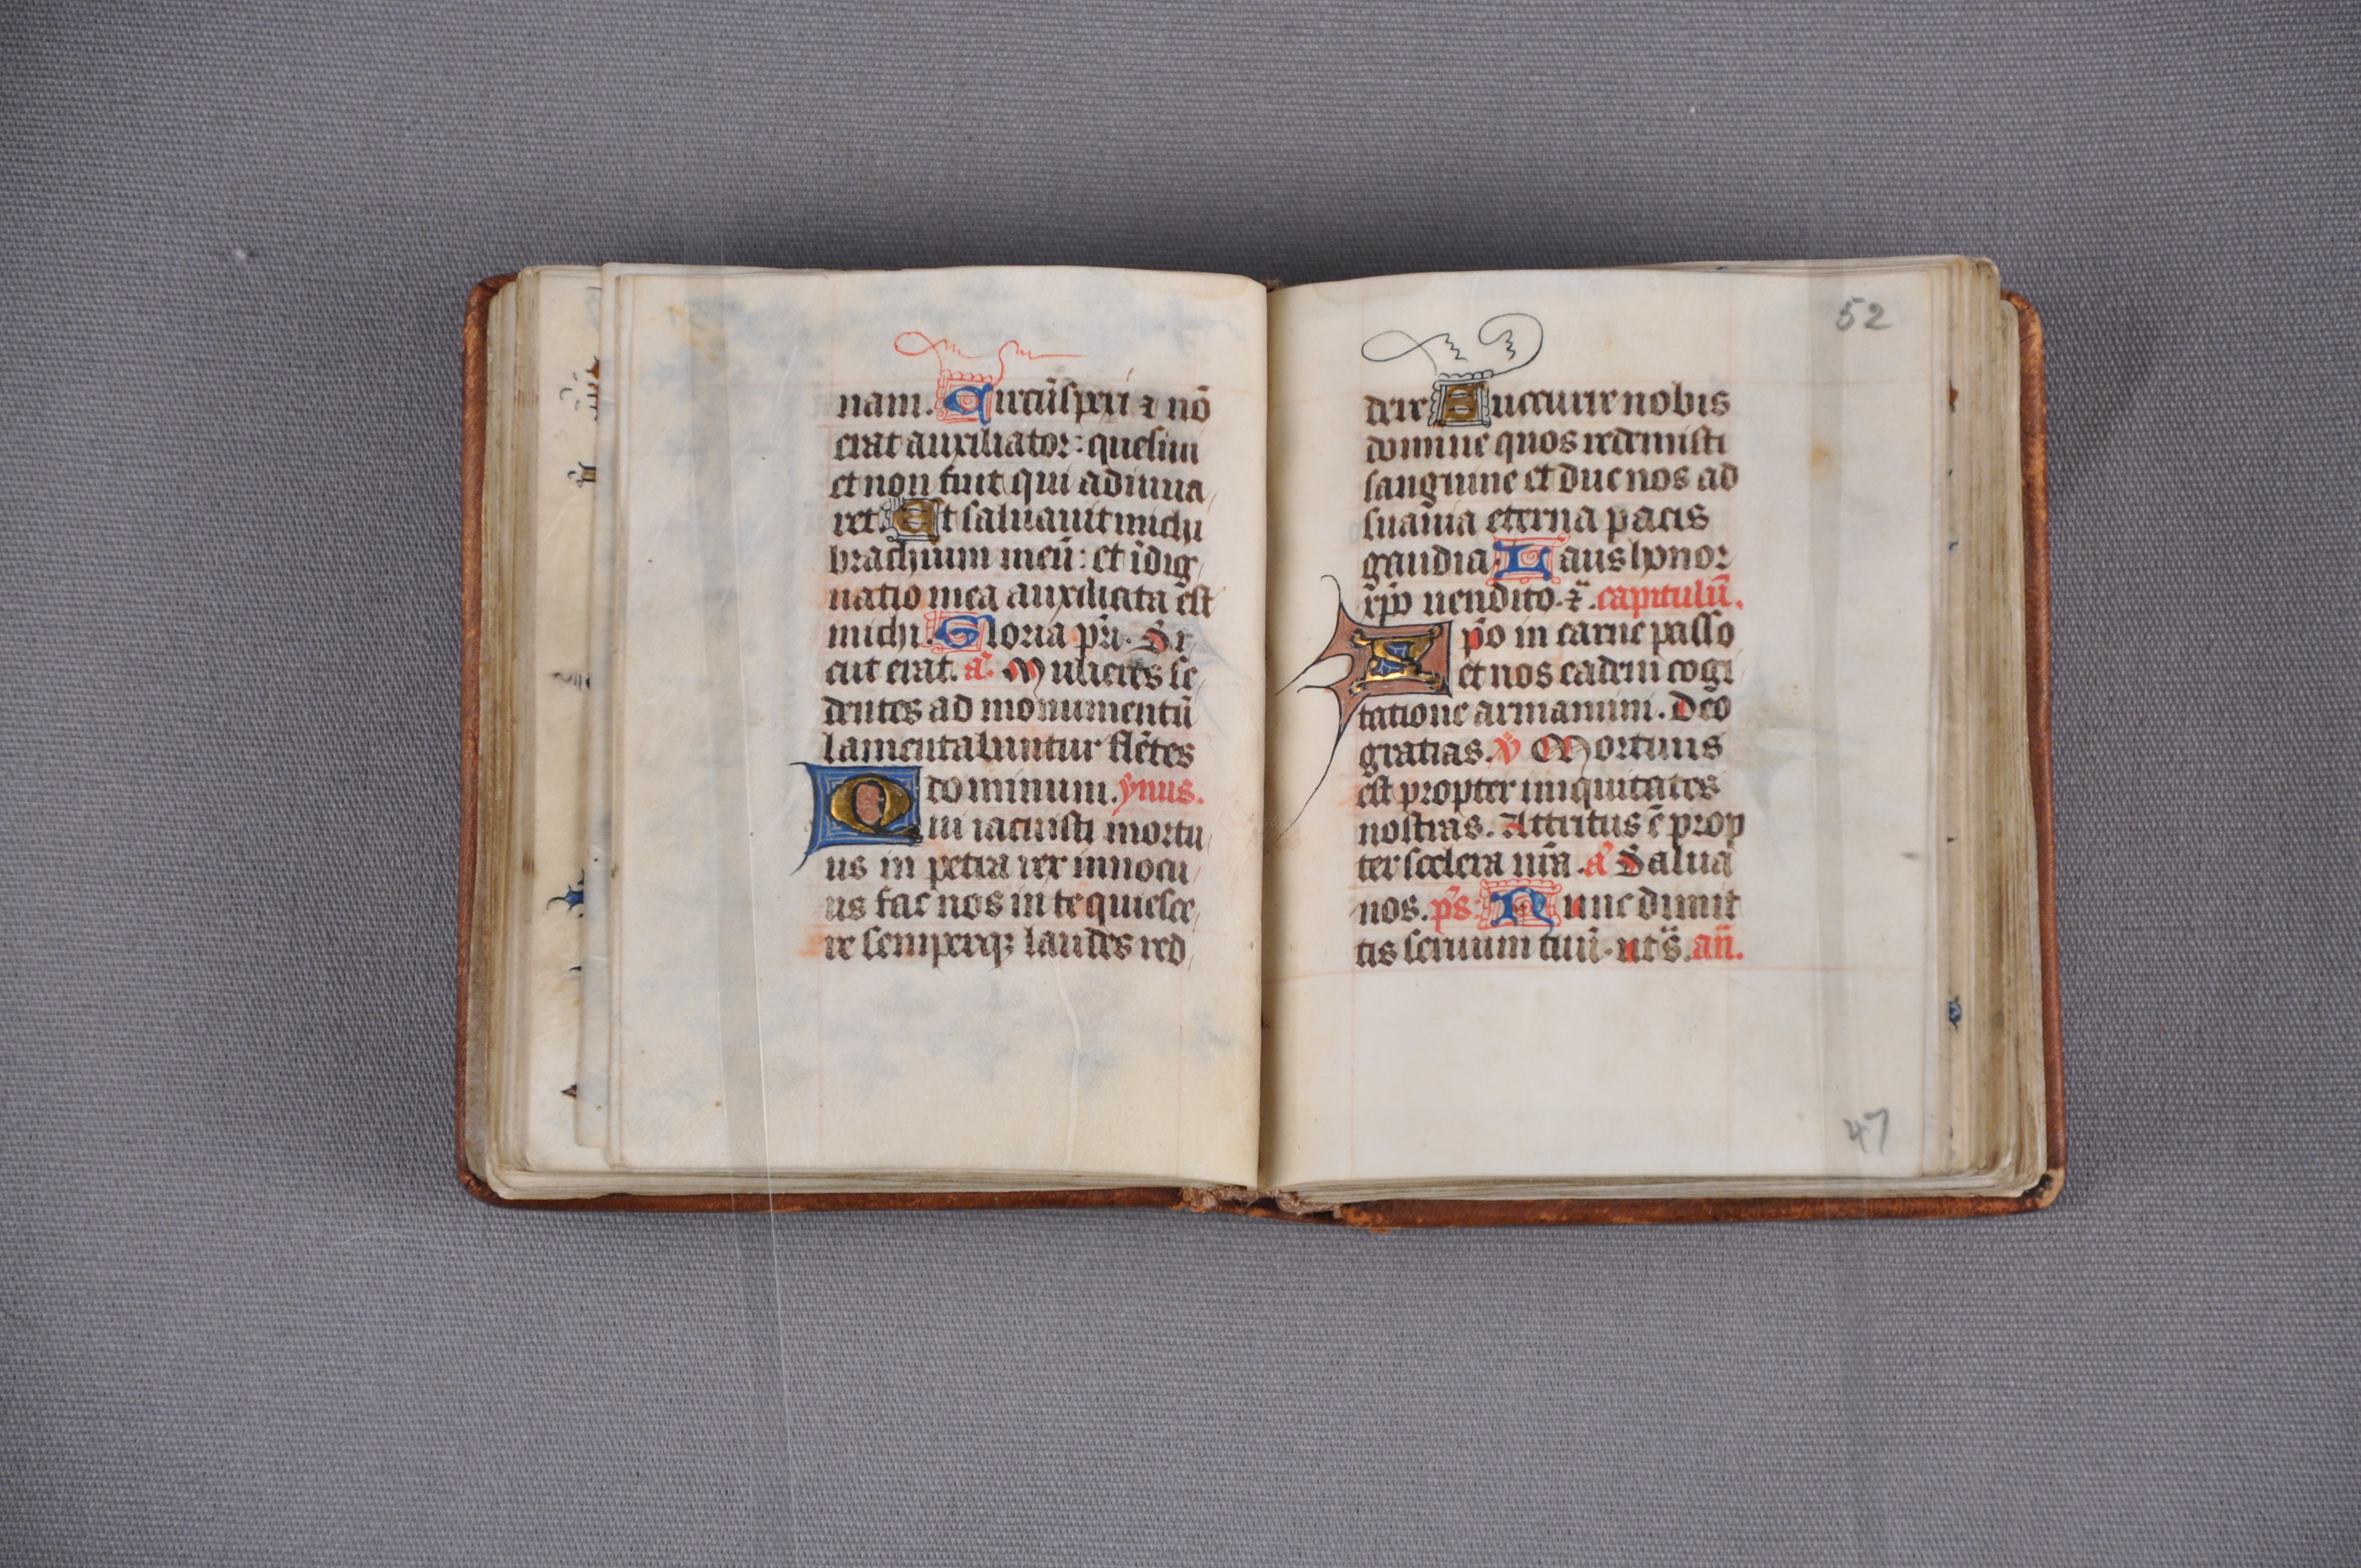 nam. Circūspexi ⁊ nō
erat auxiliator: quesiui
et non fuit qui adiuua
ret. Et saluauit michi
brachium meū: et īdig
natio mea auxiliata est
michi. Gloria pr̄i. Si
cut erat. a᷒. Mulieres se
dentes ad monumentū
lamentabuntur flētes
dominum. ẏnus.
Qui iacuisti mortu
us in petra rex innocu
us fac nos in te quiesce
re semperqꝫ laudes red
52
dere Succurre nobis
domine quos redemisti
sanguine et duc nos ad
suauia eterna pacis
gaudia. Laus honor
xp̄o uendito. ⁊c̄. capitulū.
Xp̄o in carne passo
et nos eadem cogi
tatione armamini. Deo
gratias. v̄ Mortuus
est propter iniquitates
nostras. Attritus ē prop
ter scelera nr̄a. a᷒ Salua
nos. ps̄. Nunc dimit
tis seruum tuū. uts̄. an̄.
47